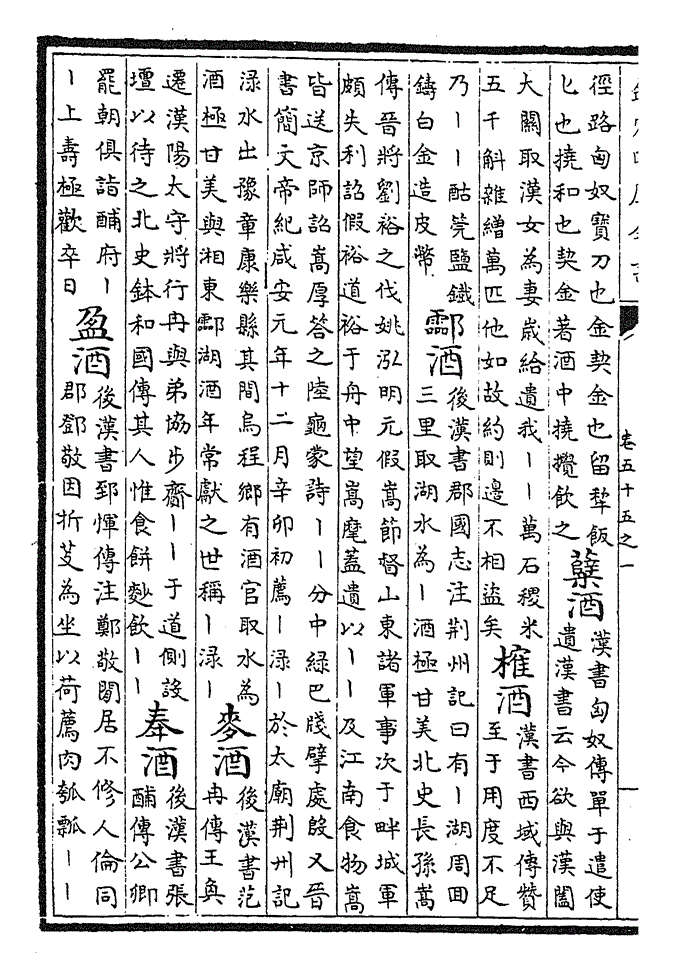 卷五十五之一
徑路匈奴寶刀也金契金也留犂飯
匕也撓和也契金著酒中撓攪飲之
糵酒
漢書匈奴傳單于遣使
遺漢書云今欲與漢闓
大關取漢女為妻歲給遺我——萬石稷米
五千斛雜繒萬匹他如故約則邊不相盜矣
榷酒
漢書西域傳贊
至于用度不足
乃——酤筦鹽鐵
鑄白金造皮幣
酃酒
後漢書郡國志注荆州記曰有—湖周囬
三里取湖水為—酒極甘美北史長孫嵩
傳晉將劉裕之伐姚泓明元假嵩節督山東諸軍事次于畔城軍
頗失利詔假裕道裕于舟中望嵩麾蓋遺以——及江南食物嵩
皆送京師詔嵩厚答之陸龜蒙詩——分中緑巴牋擘處殷又晉
書簡文帝紀咸安元年十二月辛卯初薦—淥—於太廟荆州記
淥水出豫章康樂縣其間烏程鄉有酒官取水為
酒極甘美與湘東酃湖酒年常獻之世稱—淥—
麥酒
後漢書范
冉傳王奐
遷漢陽太守將行冉與弟協步齎——于道側設
壇以待之北史鉢和國傳其人惟食餅麨飲——
奉酒
後漢書張
酺傳公卿
罷朝俱詣酺府—
—上壽極歡卒日
盈酒
後漢書郅惲傳注鄭敬閒居不修人倫同
郡鄧敬因折芰為坐以荷薦肉瓠瓢——